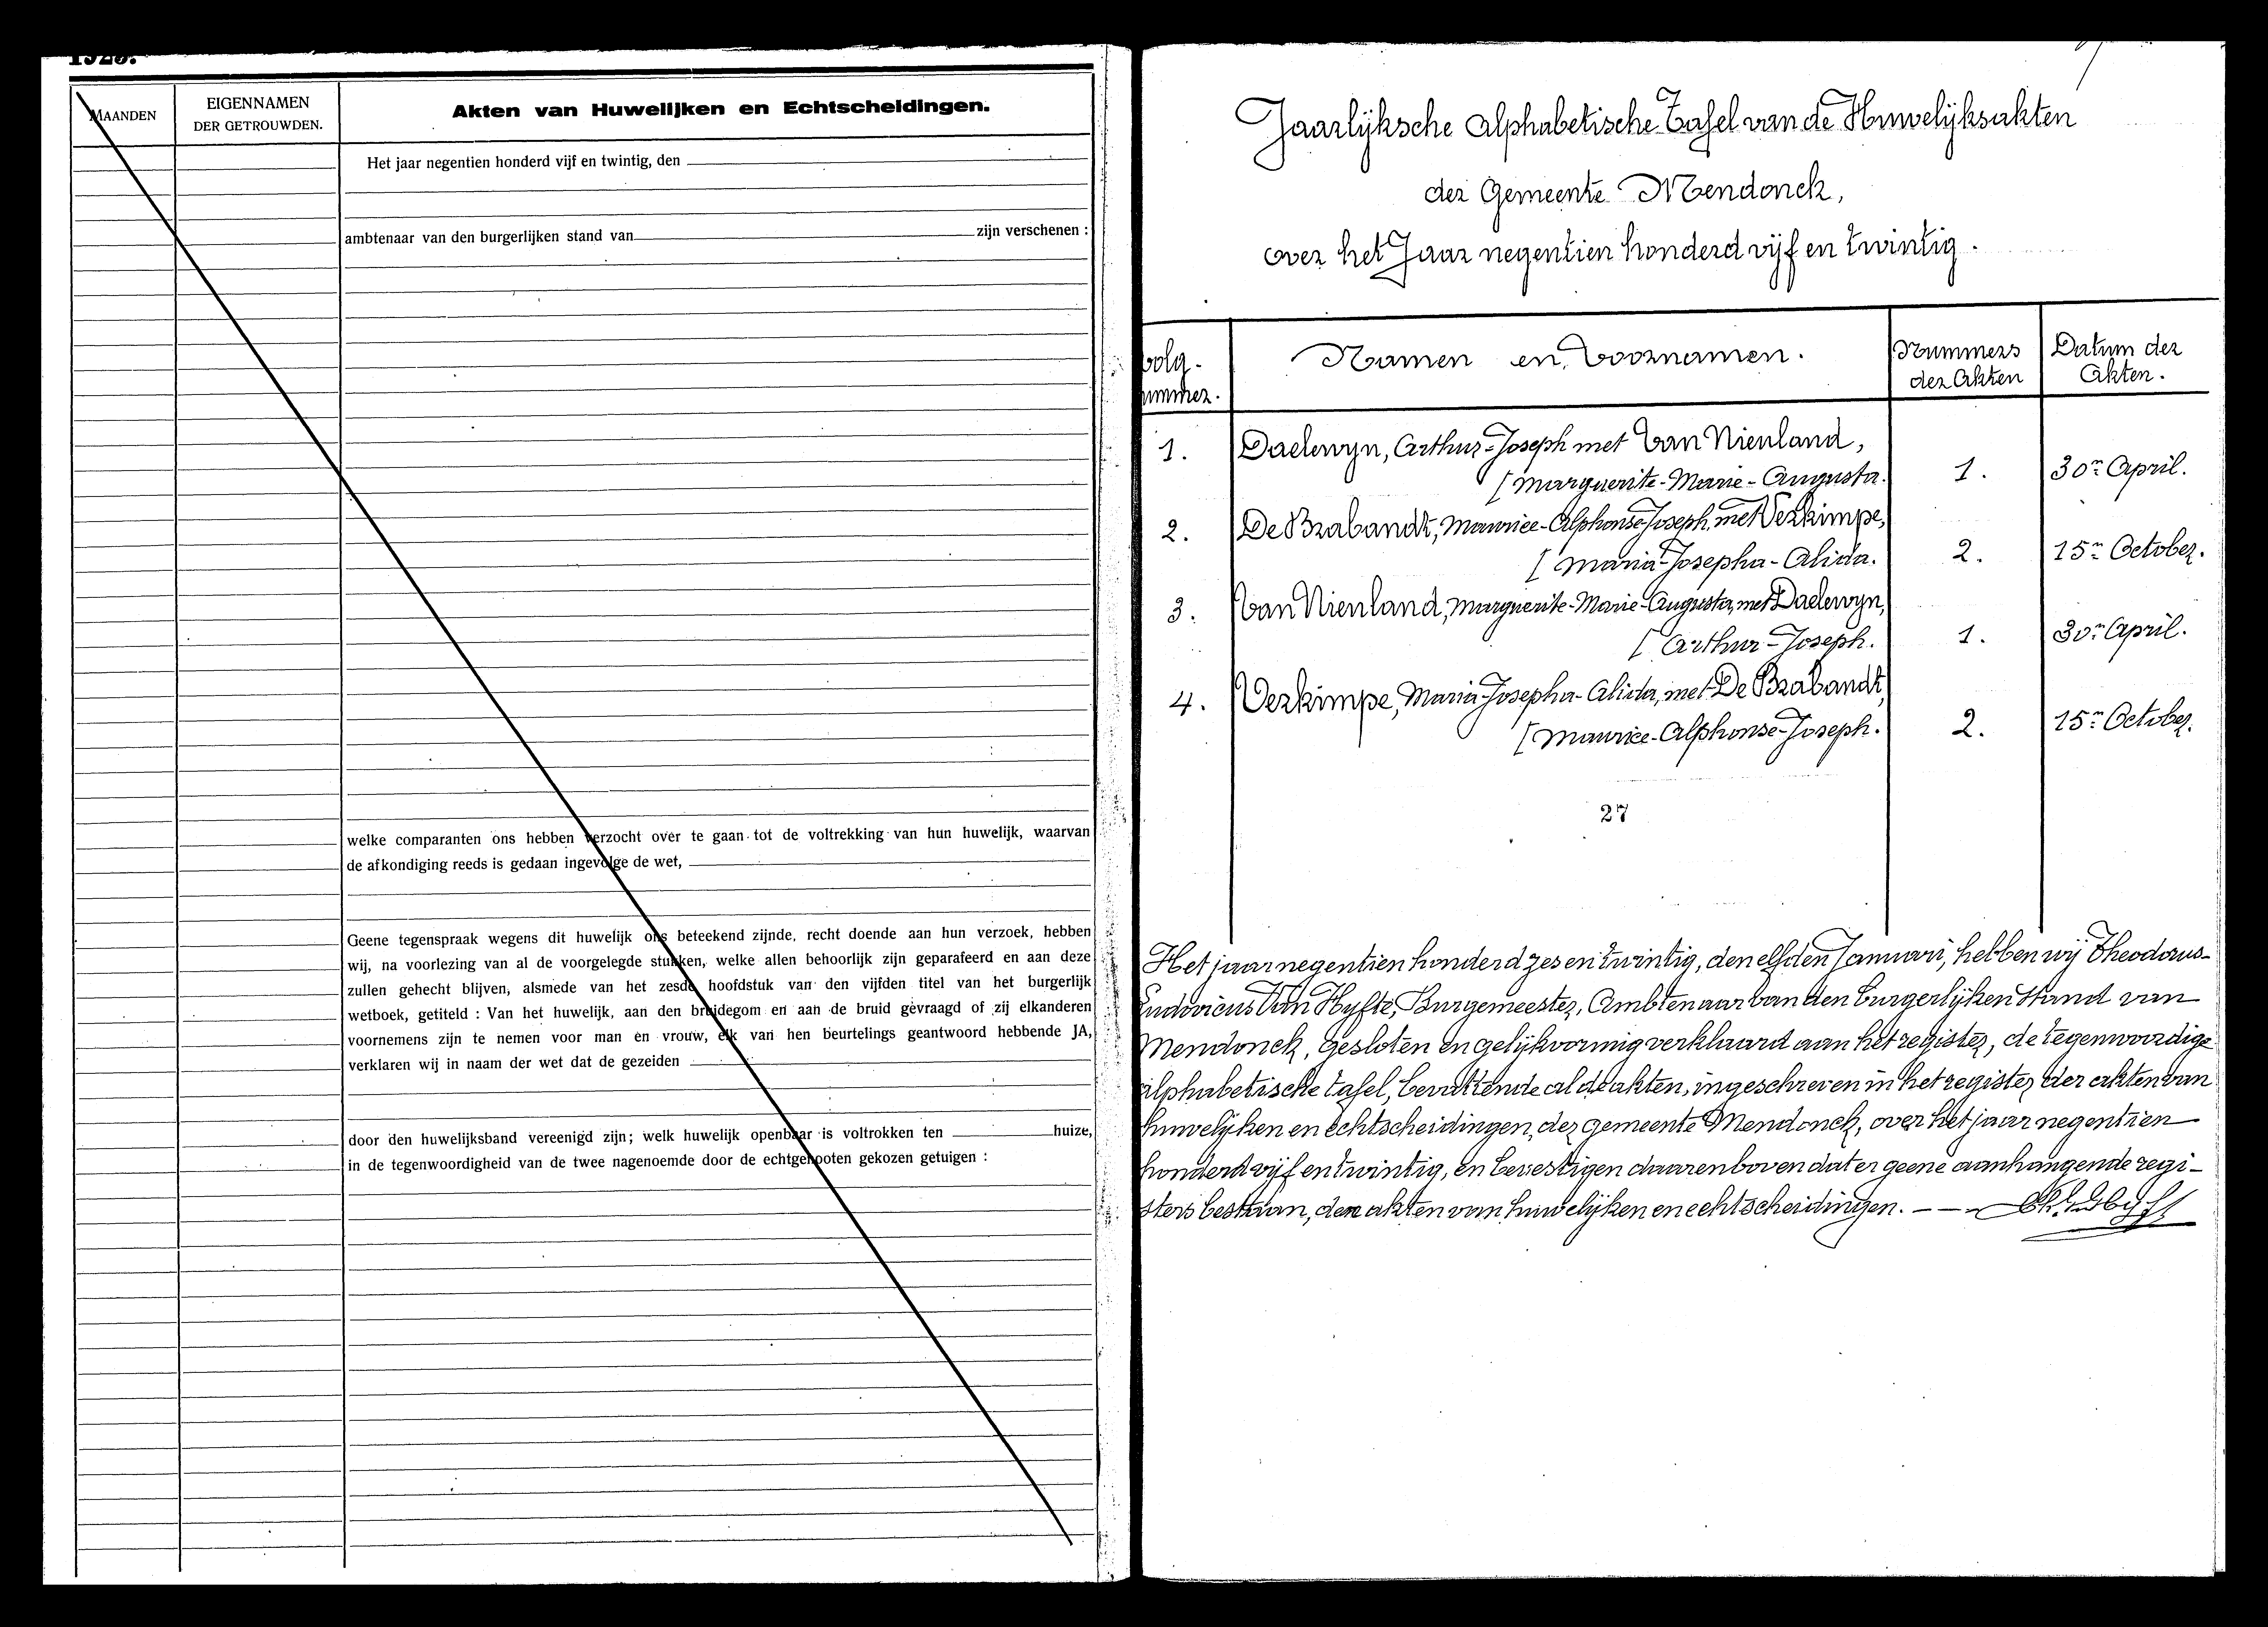 1925.
MAANDEN
EIGENNAMEN
DER GETROUWDEN.
Akten van Huwelijken en Echtscheidingen.
Het jaar negentien honderd vijf en twintig, den
ambtenaar van den burgerlijken stand van zijn verschenen :
welke comparanten ons hebben verzocht over te gaan tot de voltrekking van hun huwelijk, waarvan
de afkondiging reeds is gedaan ingevolge de wet,
Geene tegenspraak wegens dit huwelijk ons beteekend zijnde, recht doende aan hun verzoek, hebben
wij, na voorlezing van al de voorgelegde stukken, welke allen behoorlijk zijn geparafeerd en aan deze
zullen gehecht blijven, alsmede van het zesde hoofdstuk van den vijfden titel van het burgerlijk
wetboek, getiteld : Van het huwelijk, aan den bruidegom en aan de bruid gevraagd of zij elkanderen
voornemens zijn te nemen voor man en vrouw, elk van hen beurtelings geantwoord hebbende JA,
verklaren wij in naam der wet dat de gezeiden
door den huwelijksband vereenigd zijn; welk huwelijk openbaar is voltrokken ten huize,
in de tegenwoordigheid van de twee nagenoemde door de echtgenooten gekozen getuigen :
Jaarlijksche Alphabetische Tafel van de Huwelijksakten
der Gemeente Mendonck,
over het Jaar negentien honderd vijf en twintig.
Volg-
nummer.
Namen en Voornamen.
Nummers
der Akten
Datum der
Akten.
1. Daelwyn, Arthur-Joseph met Van Nienland,
[Marguerite-Marie-Augusta. 1. 30n April.
2. De Brabandt, Maurice-Alphonse-Joseph, met Verkimpe,
[Maria-Josepha-Alida. 2. 15n October.
3. Van Nienland, Marguerite-Marie-Augusta, met Daelwyn,
[Arthur-Joseph. 1. 30n April.
4. Verkimpe, Maria-Josepha-Alida, met De Brabandt,
[Maurice-Alphonse-Joseph. 2. 15n October.
27
Het jaar negentien honderd zes en twintig, den elfden Januari, hebben wij Theodorus-
Ludovicus Van Hyfte, Burgemeester, Ambtenaar van den Burgerlijken Stand van
Mendonck, gesloten en gelijkvormig verklaard aan het register, de tegenwoordige
alphabetische tafel, bevattende al de akten, ingeschreven in het register der akten van
huwelijken en echtscheidingen, der gemeente Mendonck, over het jaar negentien
honderd vijf en twintig, en bevestigen daarenboven dat er geene aanhangende regi-
sters bestaan, der akten van huwelijken en echtscheidingen. — —